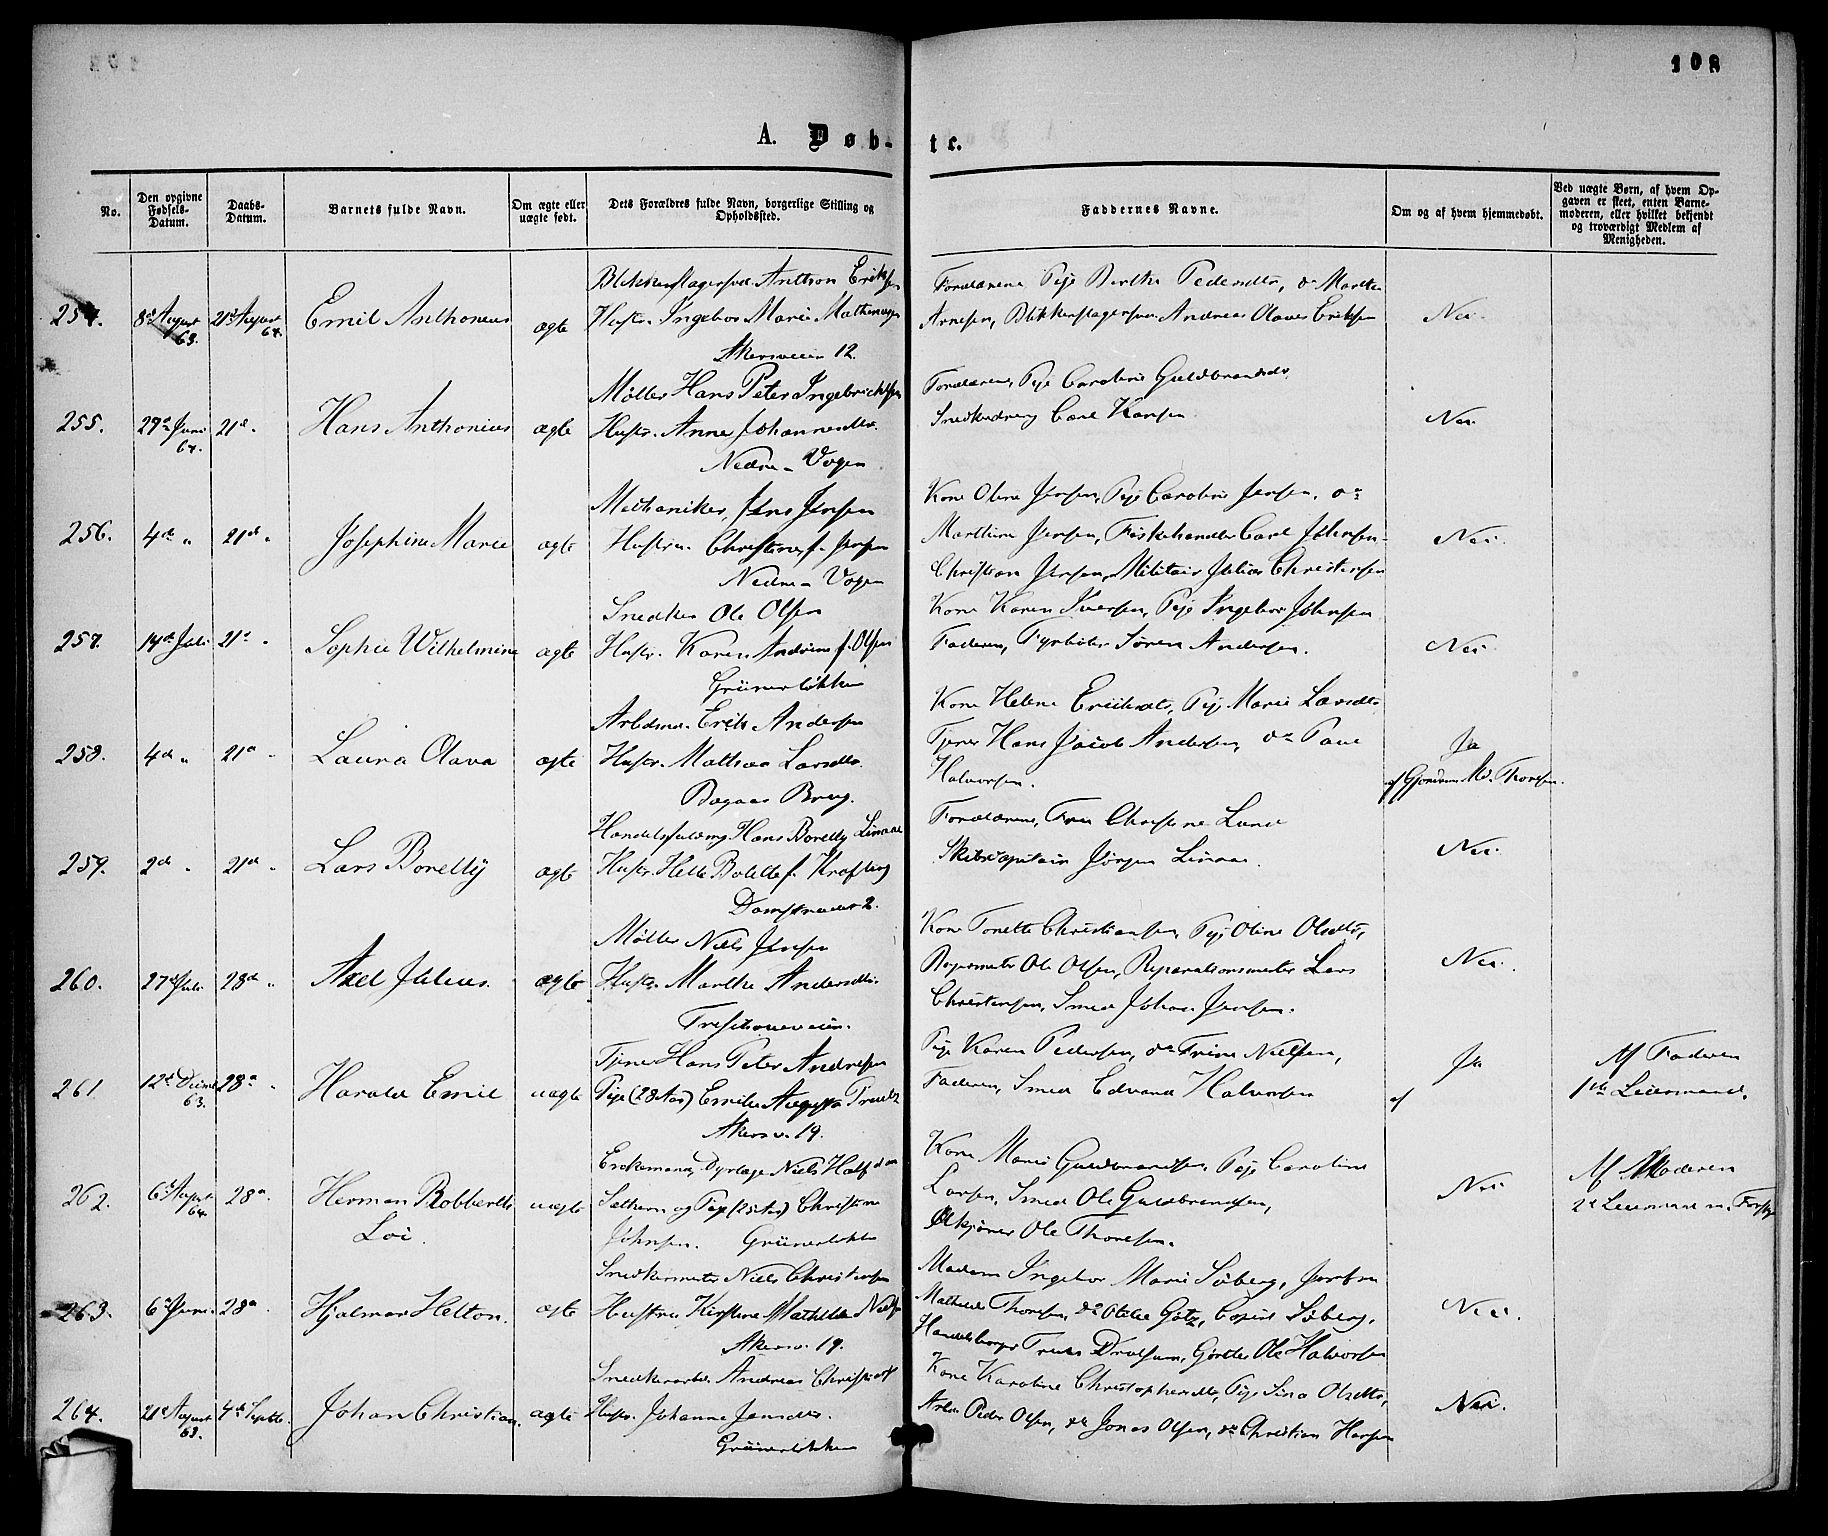 108
A. Døb- te.
No.
Den opgivne Fødsels-Datum.
Daabs-Datum.
Barnets fulde Navn.
Om ægte eller uægte født.
Dets Forældres fulde Navn, borgerlige Stilling og Opholdssted.
Faddernes Navne.
Om og af hvem hjemmedøbt.
Ved uægte Børn, af hvem Opgaven er skeet, enten Barnemoderen, eller hvilket bekjendt og troværdigt Medlem af Menigheden.
254. 8de August 63. 21de August 64. Emil Anthonius ægte
Hustr. Ingebor Marie
Akersveien 12.
Forældrene Pige Berthe Pedersdtr, do Marthe
Arnesen, Andreas Olaves Eriksen
Nei.
255. 29de Juni 64. 21de Hans Anthonius ægte
Møller Hans Peter Ingebrichtsen
Hustr. Anne Johannesdtr.
Nedre Vogen
Forældrene, Pige Caroline Guldbrandsdtr.
Snedkerdreng Carl Hansen
Nei.
256. 4de " 21de " Josephine Marie ægte
Mechaniker, Jens Jensen
Hustru Christine f. Jensen
Nedre Vogen
Kone Oline Jensen, Pige Caroline Jensen, do
Marthine Jensen, Fiskehandler Carl Johnsen
Christian Jensen, Militair Julius Christensen
Nei.
257. 14de Juli 21de " Sophie Wilhelmine ægte
Snedker Ole Olsen
Hustr. Karen Andrine f. Olsen
Grünerløkken
Kone Karen Iversen, Pige Ingebor Johnsen
Faderen, Fyrbøder Søren Andersen.
Nei.
258. 4de " 21de " Laura Olava ægte
Arbdsmd. Erik Andersen
Hustr. Mathea Larsdtr.
Bagaas Brug.
Kone Helene Eriksdtr, Pige Marie Larsdtr
Tjener Hans Jacob Andersen, do Paul
Halvorsen.
Ja
af Gjordem. Md. Thoresen.
259. 2de " 21de " Lars Borelly ægte
Hans Borelly Linaae
Hustr. Helle Bolette f.
Damstrædet 2.
Forældrene, Fru Christine Lund
Skibscapitain Jørgen Linaae.
Nei.
260. 27de Juli 28de " Axel Julius. ægte
Møller Niels Jensen
Hustr. Marthe Andersdtr.
Kone Tonette Christiansen, Pige Oline Olsdtr,
Ole Olsen, Reparationsmester Lars
Christensen, Smed Johan Jensen.
Nei.
261. 12te 63. 28de " Harald Emil uægte
Tjener Hans Peter Andresen
Pige (28 Aar) Emilie Augusta
Akersv. 19.
Pige Karen Pedersen, do Trine Nielsen,
Faderen, Smed Edvard Halvorsen
Ja
af
Af Faderen
1ste Leiermaal.
262. 6te August 64. 28de Herman Robberth
Loi. uægte
Enkemand, Dyrlæge Niels Halfdan
og Pige (25 Aar) Christine
Johnsen. Grünerløkken
Kone Marie Guldbrandsen, Pige Caroline
Larsen, Smed Ole Guldbrandsen,
Ole Thoresen.
Nei
Af Moderen
263. 6te Juni 28de Hjalmar Helton. ægte
Snedkermester Niels Christensen
Hustru Kirstine Mathilde
Akersv. 19.
Madam Ingebor Marie Søberg, Jomfru
Mathilde Thoresen, do Otilie Götz, Copist Søberg,
Gørtler Ole Halvorsen
Nei.
264. 21de August 63. 4de Septbr. Johan Christian. ægte
Snedkerarbd. Andreas
Hustr. Johanne Jensdtr.
Grünerløkken
Kone Karoline Christophersdtr, Pige Olsdtr,
Arbm Peder Olsen, do Jonas Olsen, do Christian Hansen
Nei.